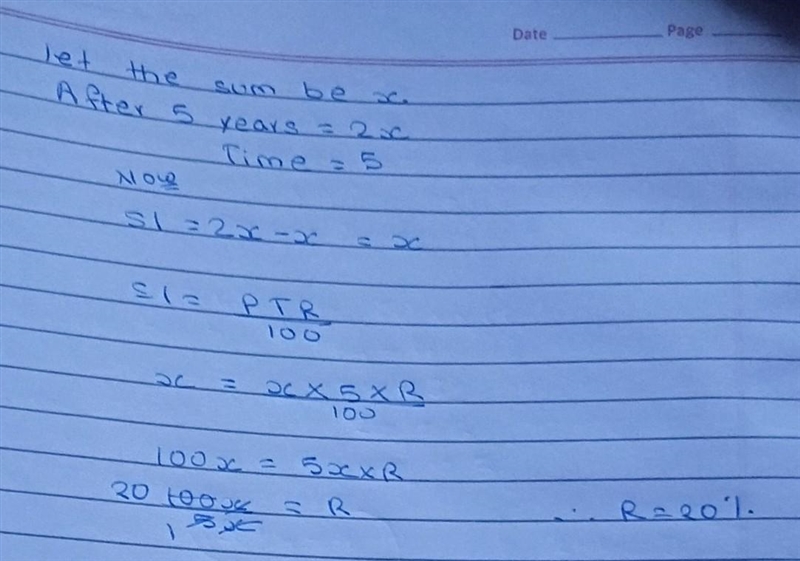 Date Page
let the sum be x.
After 5 years = 2x
Time = 5
Now
SI = 2x - x = x
SI = PTR/100
x = x × 5 × R/100
100x = 5x × R
20 100x/1 5x = R ∴ R = 20%.